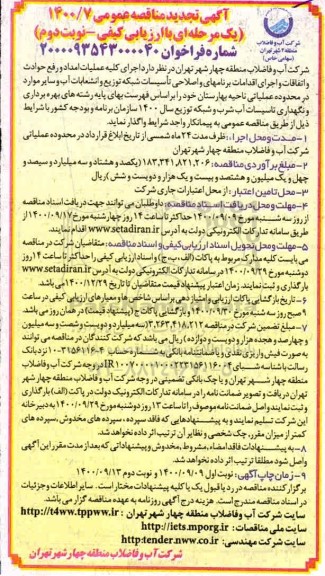 آگهی تجدید مناقصه عمومی ۱۴۰۰/۷
(یک مرحله‌ای با ارزیابی کیفی - نوبت دوم)
شماره فراخوان ۲۰۰۰۰۹۳۵۴۳۰۰۰۰۴۰
شرکت آب و فاضلاب
منطقه ۴ شهر تهران
(سهامی خاص)
شرکت آب و فاضلاب منطقه چهار شهر تهران در نظر دارد اجرای کلیه عملیات امداد و رفع حوادث
و اتفاقات و اجرای اقدامات برنامه‌ای و اصلاحی تأسیسات شبکه توزیع و انشعابات آب و سایر موارد
در محدوده عملیاتی ناحیه بهارستان خود را بر اساس فهرست بهای پایه رشته های بهره برداری
و نگهداری تاسیسات آب شرب و شبکه توزیع سال ۱۴۰۰ سازمان برنامه و بودجه کشور با شرایط
ذیل از طریق مناقصه عمومی به پیمانکار واجد شرایط واگذار نماید.
۱- مدت و محل اجرا: ظرف مدت ۲۴ ماه شمسی از تاریخ ابلاغ قرارداد در محدوده عملیاتی
شرکت آب و فاضلاب منطقه چهار شهر تهران
۲- مبلغ برآوردی مناقصه: ۱۸۳،۳۴۱،۸۲۱،۲۰۶ (یکصد و هشتاد و سه میلیارد و سیصد و
چهل و یک میلیون و هشتصد و بیست و یک هزار و دویست و شش) ریال
۳- محل تامین اعتبار: از محل اعتبارات جاری شرکت
۴- مهلت و محل دریافت اسناد مناقصه: داوطلبان می توانند جهت دریافت اسناد مناقصه
از روز سه شنبه مورخ ۱۴۰۰/۰۹/۰۹ حداکثر تا ساعت ۱۴ روز چهارشنبه مورخ ۱۴۰۰/۰۹/۱۷ از
طریق سامانه تدارکات الکترونیکی دولت به آدرس www.setadiran.ir اقدام نمایند.
۵- مهلت و محل تحویل اسناد ارزیابی کیفی و اسناد مناقصه: متقاضیان شرکت در مناقصه
می بایست کلیه مدارک مربوط به پاکات (الف، ب، ج) و اسناد ارزیابی کیفی را حداکثر تا ساعت ۱۴ روز
دوشنبه مورخ ۱۴۰۰/۰۹/۲۹ در سامانه تدارکات الکترونیکی دولت به آدرس www.setadiran.ir
بارگذاری و ثبت نمایند. زمان اعتبار پیشنهاد قیمت متقاضیان تا تاریخ ۱۴۰۰/۱۲/۲۹ می باشد.
۶- تاریخ بازگشایی پاکات ارزیابی و امتیازدهی بر اساس شاخص ها و معیارهای ارزیابی کیفی در ساعت
۹ صبح روز سه شنبه مورخ ۱۴۰۰/۰۹/۳۰ و بازگشایی پاکات ج (پیشنهاد قیمت) در همان روز می باشد.
۷- مبلغ تضمین شرکت در مناقصه ۳،۲۶۳،۴۱۸،۲۱۲ (سه میلیارد و دویست و شصت و سه میلیون
و چهارصد و هجده هزار و دویست و دوازده) ریال می باشد که شرکت کنندگان در مناقصه می توانند
به صورت فیش واریزی نقدی و یا ضمانتنامه بانکی به شماره حساب نزد بانک
رسالت با شناسه شبای در وجه شرکت آب و فاضلاب
منطقه چهار شهر تهران و یا چک بانکی تضمینی در وجه شرکت آب و فاضلاب منطقه چهار شهر
تهران دریافت و تصویر ضمانت نامه را در سامانه تدارکات الکترونیک دولت در پاکت (الف) بارگذاری
و ثبت نمایند و اصل ضمانت نامه موصوف را تا ساعت ۱۳ روز دوشنبه مورخ ۱۴۰۰/۰۹/۲۹ به دبیرخانه
این شرکت تسلیم نمایند و به پیشنهادهایی که فاقد سپرده، سپرده های مخدوش، سپرده های
کمتر از میزان مقرر، چک شخصی و نظایر آن ترتیب اثر داده نخواهد شد.
۸- به پیشنهادات فاقد امضاء، مشروط، مخدوش و پیشنهاداتی که بعد از مدت مقرر این آگهی
واصل شود مطلقا ترتیب اثر داده نخواهد شد.
۹- زمان چاپ آگهی: نوبت اول ۱۴۰۰/۰۹/۰۹ و نوبت دوم ۱۴۰۰/۰۹/۱۳
برگزار کننده مناقصه در رد یا قبول یک یا کلیه پیشنهادات مختار است. سایر اطلاعات و جزئیات
در اسناد مناقصه مندرج است. هزینه درج آگهی روزنامه به عهده مناقصه گزار می باشد.
سایت شرکت آب و فاضلاب منطقه چهار شهر تهران: http://t4ww.tppww.ir
سایت ملی مناقصات: http://iets.mporg.ir
سایت شرکت مهندسی: http:tender.nww.co.ir
شرکت آب و فاضلاب منطقه چهار شهر تهران